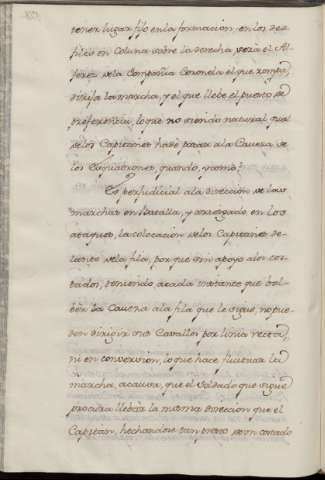 tener lugar fijo en la formacion, en los des-
files en Coluna sobre la derecha, será el Al-
ferez de la Compañia Coronela el que rompa,
dirija la marcha, y el que llebe el puesto de
preferencia, lo que no siendo natural que
de los Capitanes haso pasar a la Caveza de
los Esquadrones, quando, y como?
Es perjudicial a la direccion de las
marchas en Batalla, y arresgado en los
ataques, la colocacion de los Capitanes de-
lante de la fila, por que sin apoyo a los cos-
tados, teniendo a cada instante que bol-
ber la Caveza a la fila que le sigue, no pue-
den dirigir sus Cavallos por linia recta,
ni en conversion, lo que hace fluctuar la
marcha, a causa, que el Soldado que sigue
procura llebar la misma direccion que el
Capitan, hechandose tan presto de un costado